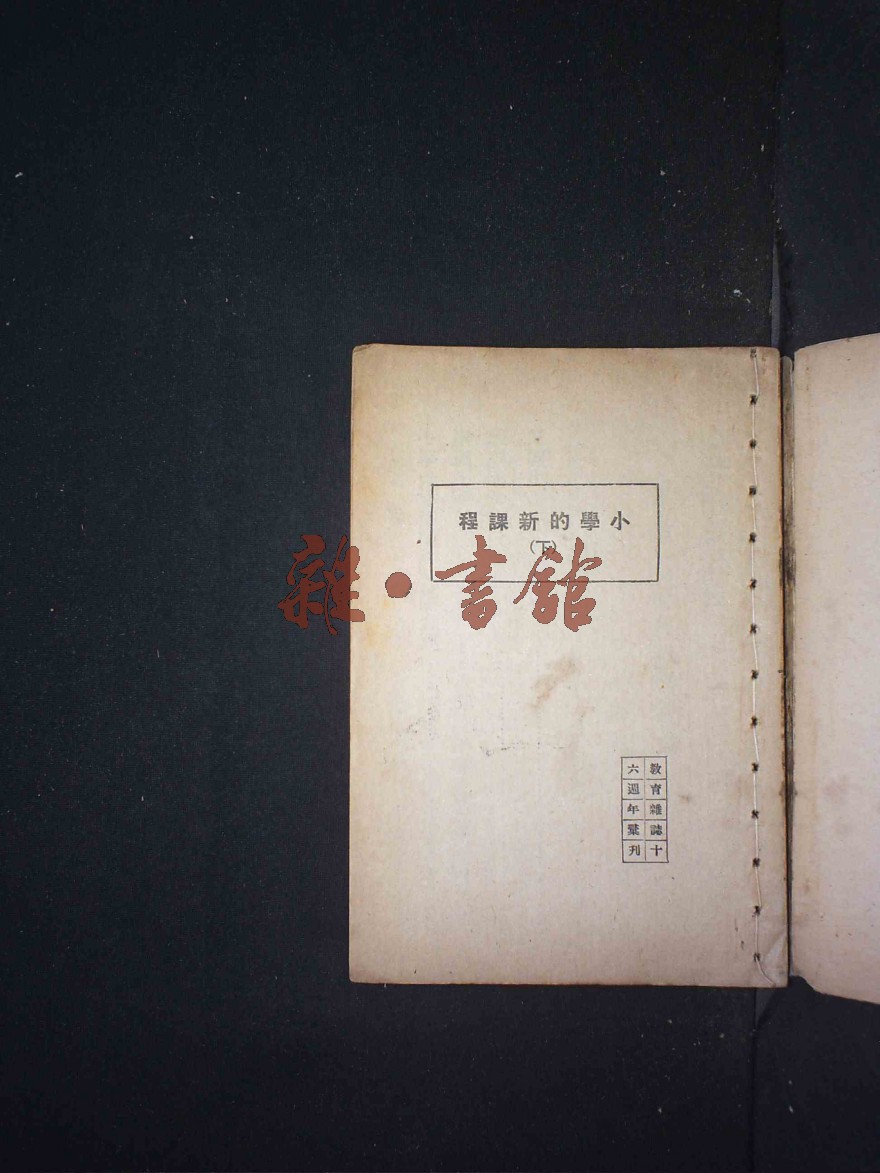 小學的新課程
(下)
雜·書館
教育雜誌十
六週年彙刊